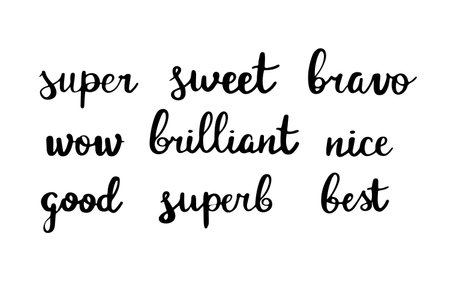 super sweet bravo
wow brilliant nice
good superb best